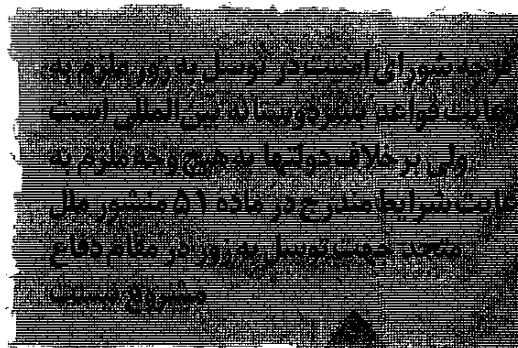 گرچه شورای امنیت در توسل به زور ملزم به
رعایت قواعد بشردوستانه بین‌المللی است
ولی برخلاف دولتها به هیچ وجه ملزم به
رعایت شرایط مندرج در ماده ۵۱ منشور ملل
متحد جهت توسل به زور در مقام دفاع
مشروع نیست